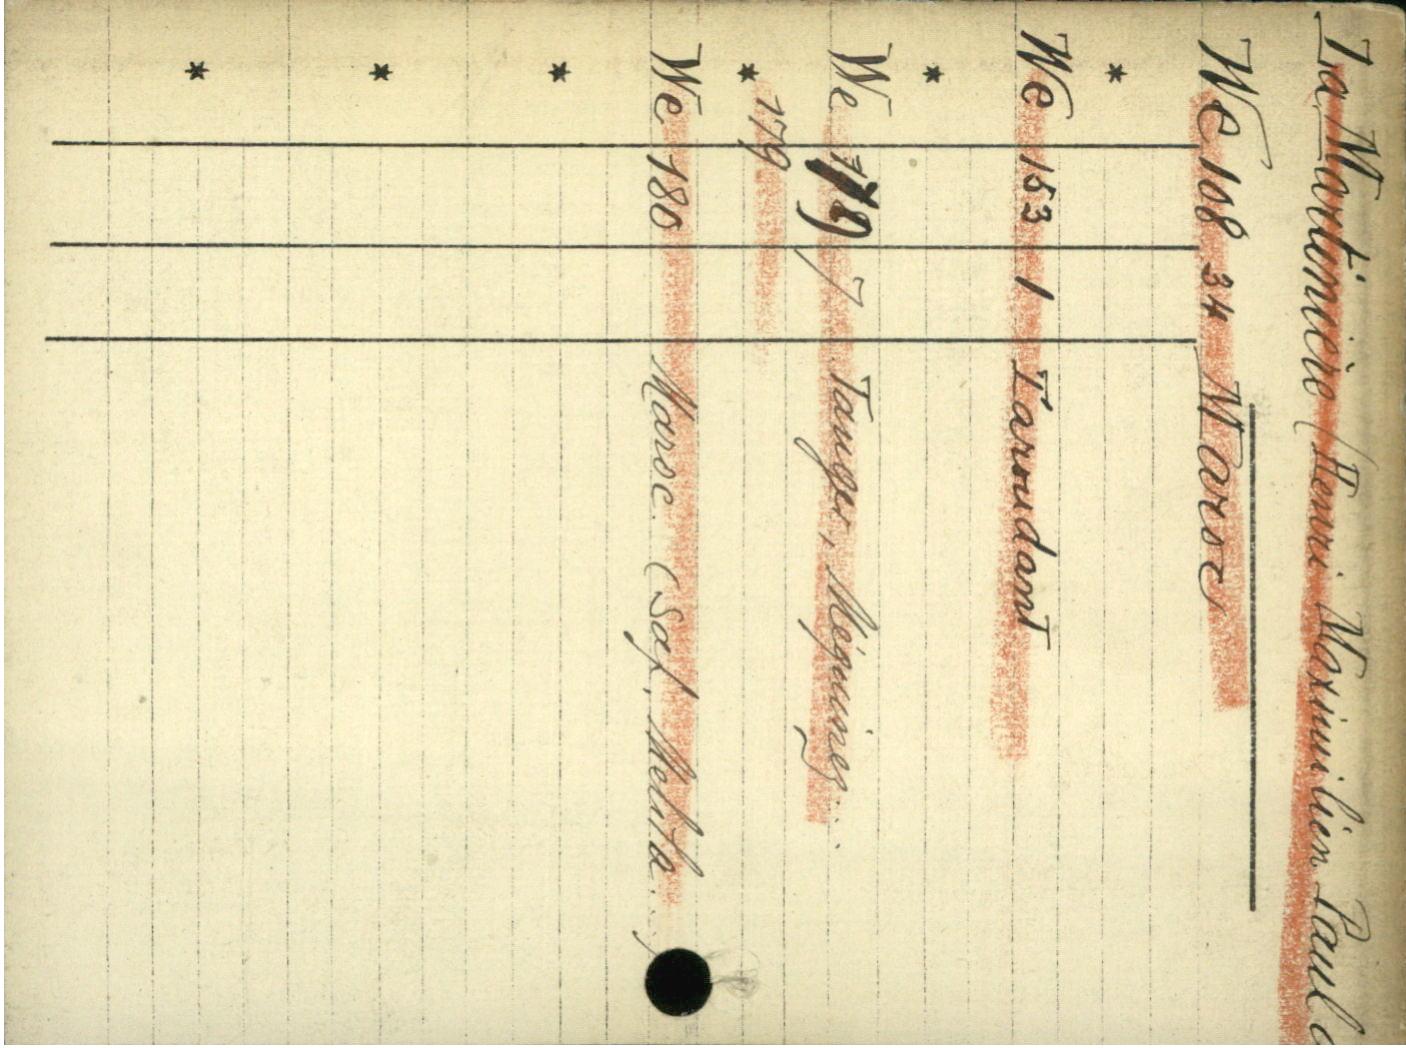 La Martinière (Henri Maximilien Paul d
We 108 34 Maroc
*
We 153 1 Taroudant
*
We 179 7 Tanger, Méquinez...
* 179
We 180 Maroc. (Saf, Melila...)
*
*
*